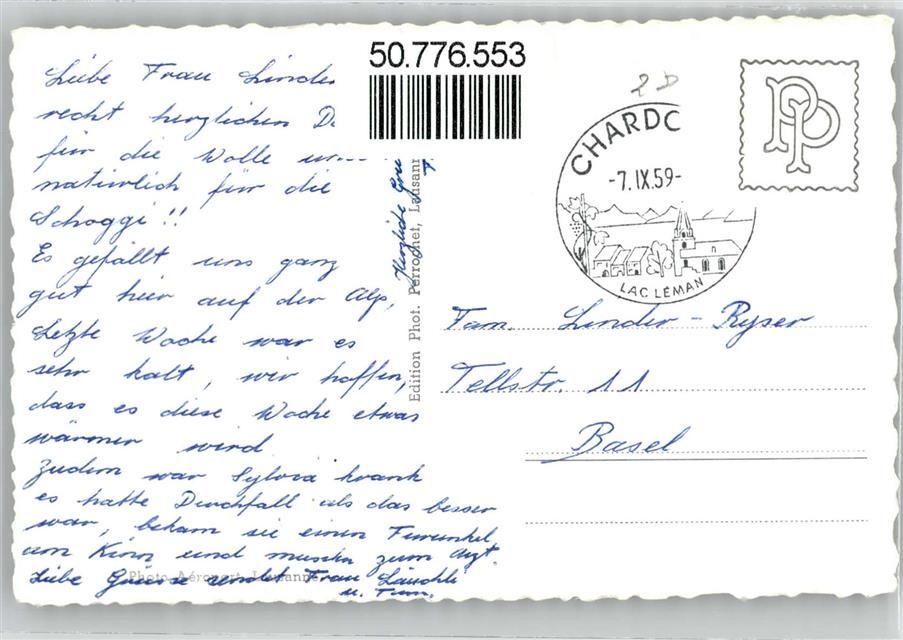 50.776.553
Liebe Frau Linder
recht herzlichen D
für die Wolle un
natürlich für die
Schoggi !!
Es gefällt uns ganz
gut hier auf der Alp,
Letzte Woche war es
sehr kalt, wir hoffen,
dass es diese Woche etwas
wärmer wird
Zudem war Sylvia krank
es hatte Durchfall als das besser
war, bekam sie einen Furunkel
am Kinn und mussten zum Arzt.
Liebe Grüsse sendet Frau Läuchli
u. Fam.
Photo Aéroport Lausanne
Herzliche Gru
Edition Phot. Perrochet, Lausann
CHARDO
-7.IX.59-
LAC LÉMAN
PP
Fam. Linder-Ryser
Tellstr. 11
Basel